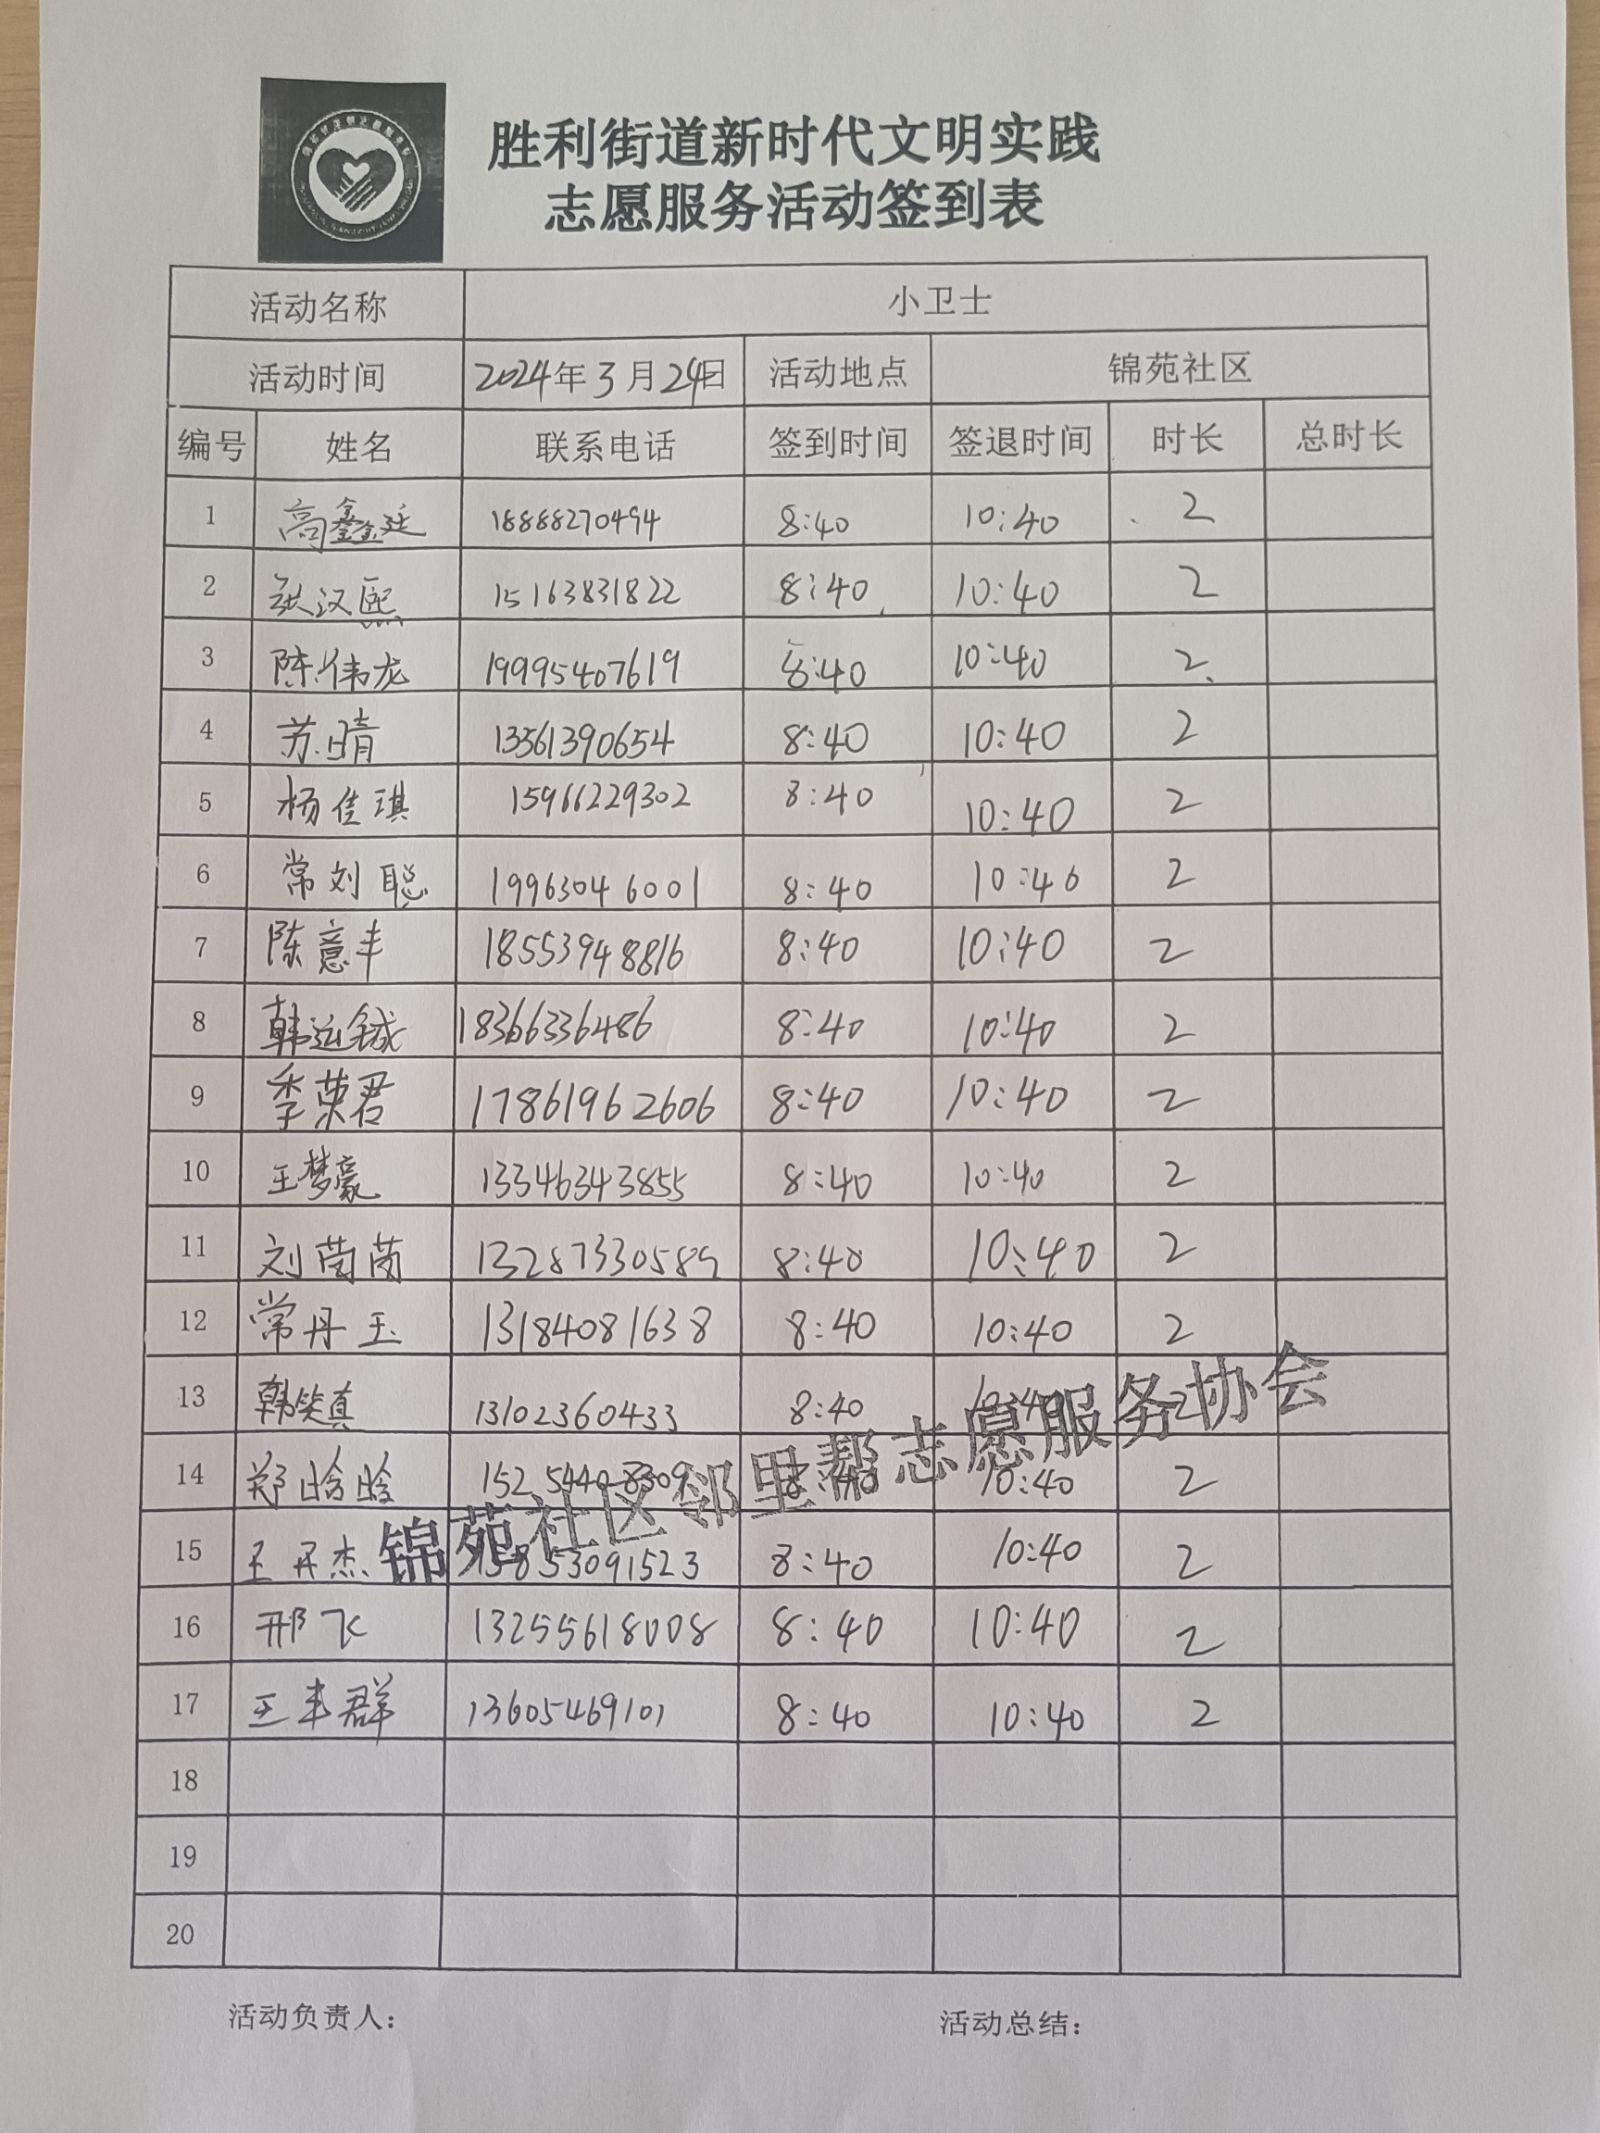 胜利街道新时代文明实践
志愿服务活动签到表
活动名称 小卫士
活动时间 2024年3月24日 活动地点 锦苑社区
编号 姓名 联系电话 签到时间 签退时间 时长 总时长
1 高鑫廷 18888270494 8:40 10:40 2
2 张汉熙 15163831822 8:40 10:40 2
3 陈伟龙 19995407619 8:40 10:40 2
4 苏晴 13561390654 8:40 10:40 2
5 杨佳琪 15966229302 8:40 10:40 2
6 常刘聪 19963046001 8:40 10:40 2
7 陈意丰 18553948816 8:40 10:40 2
8 韩远铖 18366336486 8:40 10:40 2
9 季荣君 17861962606 8:40 10:40 2
10 王梦豪 13346343855 8:40 10:40 2
11 刘茵茵 13287330589 8:40 10:40 2
12 常丹玉 13184081638 8:40 10:40 2
13 韩笑真 13102360433 8:40 10:40 2
14 郑晗晗 15254408309 8:40 10:40 2
15 王丹杰 15853091523 8:40 10:40 2
锦苑社区邻里帮志愿服务协会
16 邢飞 13255618008 8:40 10:40 2
17 王丰群 13605469101 8:40 10:40 2
18
19
20
活动负责人： 活动总结：